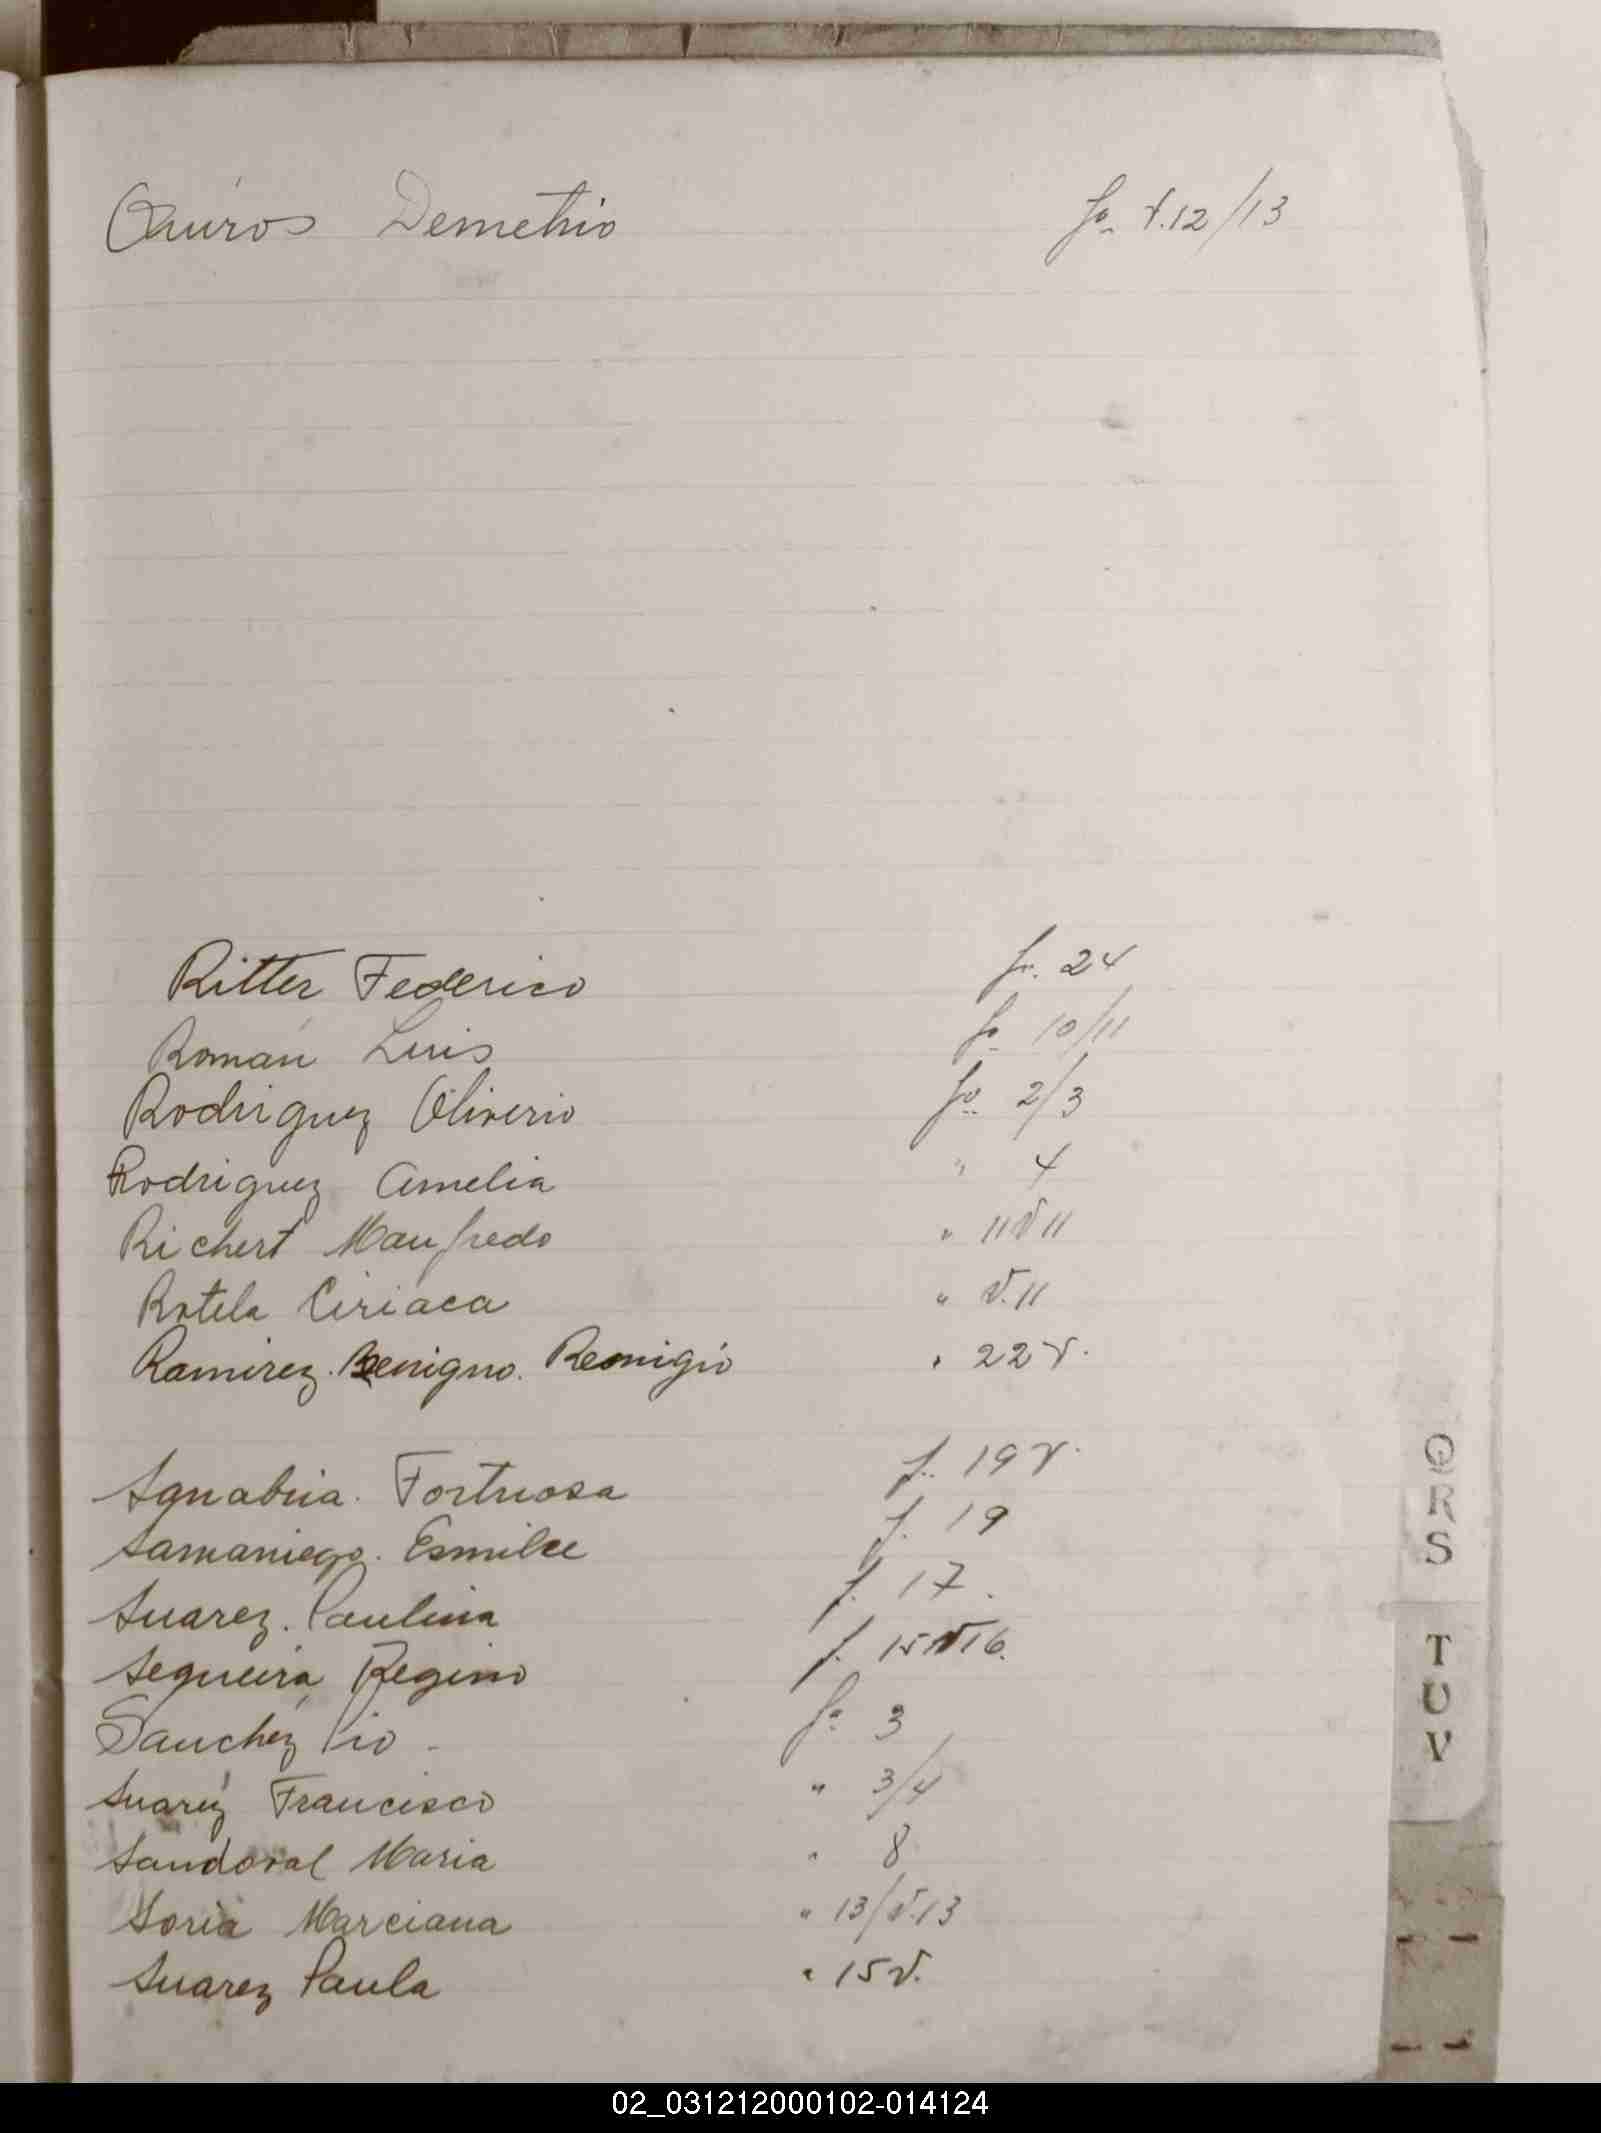 Quirós Demetrio fo. v.12/13
Ritter Federico fo. 24
Román Luis fo 10/11
Rodriguez Oliverio fo. 2/3
Rodriguez Amelia " 4
Richert Manfredo " 11 v 11
Rotela Ciriaca " v. 11
Ramirez. Benigno. Remigio " 22 v.
Sanabria. Fortuosa f. 19 v.
Samaniego. Esmilce f. 19
Suarez. Paulina f. 17.
Sequeira Regino f. 15 v 16.
Sanchez Pio - fo 3
Suarez Francisco " 3/4
Sandoval Maria " 8
Soria Marciana " 13/v.13
Suarez Paula " 15 v.
Q
R
S
T
U
V
02_031212000102-014124